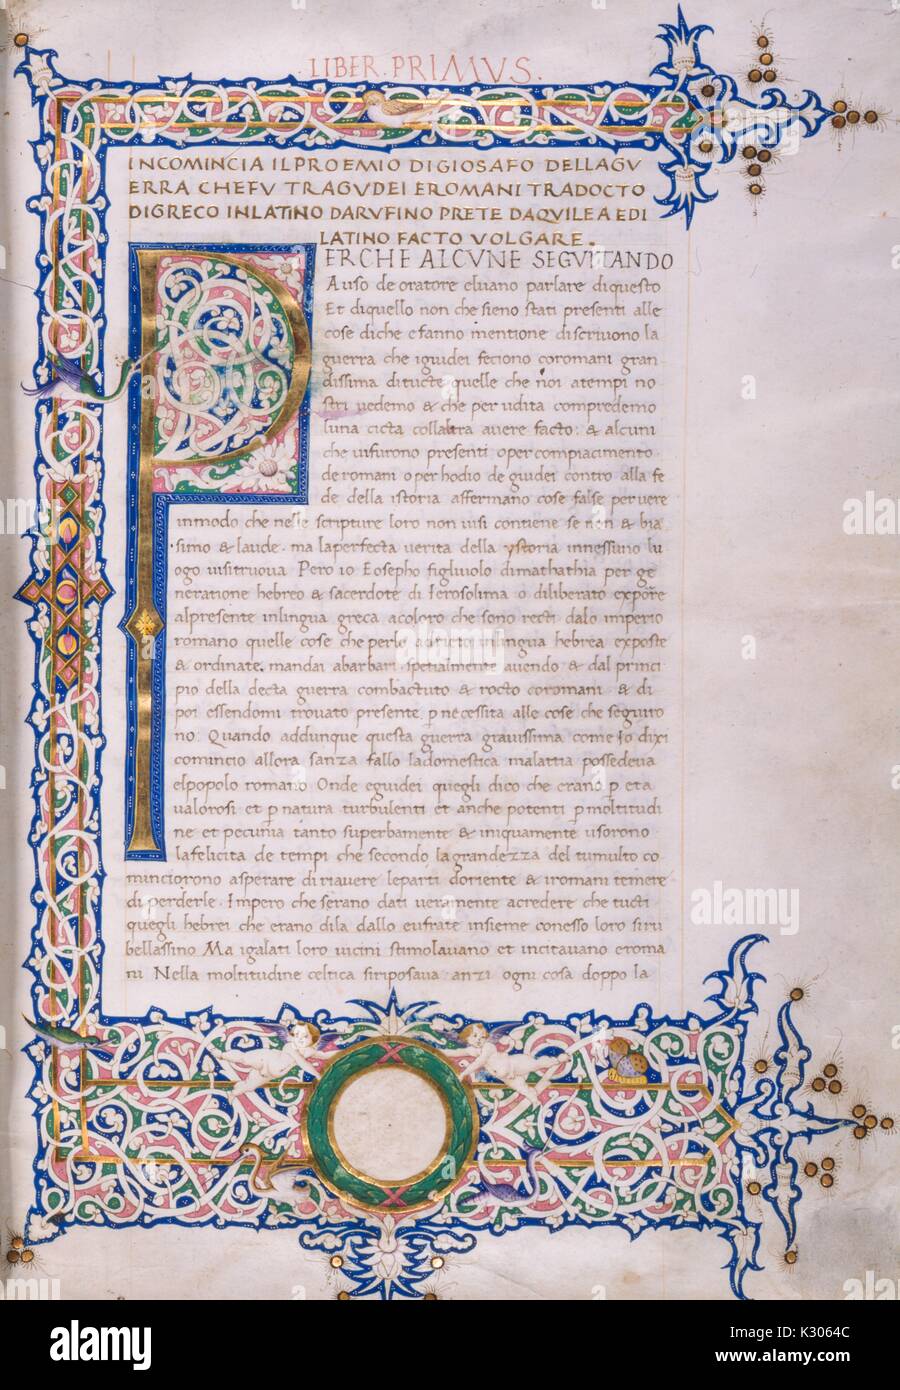 LIBER. PRIMVS.
INCOMINCIA ILPROEMIO DIGIOSAFO DELLAGV
ERRA CHEFV TRAGVDEI EROMANI TRADOCTO
DIGRECO INLATINO DARVFINO PRETE DAQVILEA EDI
LATINO FACTO VOLGARE.
PERCHE ALCVNE SEGVITANDO
Auso de oratore parlare diquesto
Et diquello non che sieno stati presenti alle
cose diche efanno mentione discriuono la
guerra che iguidei feciono coromani gran
dissima dituete quelle che noi atempi no
stri uedemo & che per udita compredemo
luna cicta collaltra auere facto: & alcuni
che uifurono presenti o per compiacimento
de romani o per hodio de guidei contro alla fe
de della istoria affermano cose false per uere
inmodo che nelle scripture loro non uisi contiene se non & bia
simo & laude. ma laperfecta uerita della ystoria innessuno lu
ogo uisitruoua. Pero io Eosepho figluiolo dimathathia per ge
neratione hebreo & sacerdote di Ierosolima o diliberato expore
alpresente inlingua greca acoloro che sono recti dalo imperio
romano quelle cose che perlo adrieto inlingua hebrea exposte
& ordinate. mandai abarbari spetialmente auendo & dal princi
pio della decta guerra combactuto & rocto coromani. & di
poi essendomi trouato presente. p necessita alle cose che seguiro
no: Quando addunque questa guerra grauissima come Io dixi
comincio allora sanza fallo ladomestica malattia possedeua
elpopolo romano. Onde eguidei quegli dico che erano p eta
ualorosi et p natura turbulenti et anche potenti p moltitudi
ne et pecunia tanto superbamente & iniquamente usorono
lafelicita de tempi che secondo lagrandezza del tumulto co
minciorono asperare diriauere leparti doriente & iromani temere
di perderle. Impero che serano dati ueramente acredere che tucti
quegli hebrei che erano dila dallo eufrate insieme conesso loro siri
bellassino. Ma igalati loro uicini stimolauano et incitauano eroma
ni. Nella moltitudine celtica siriposaua. anzi ogni cosa doppo la
alamy
a
alamy
Image ID: K3064C
www.alamy.com